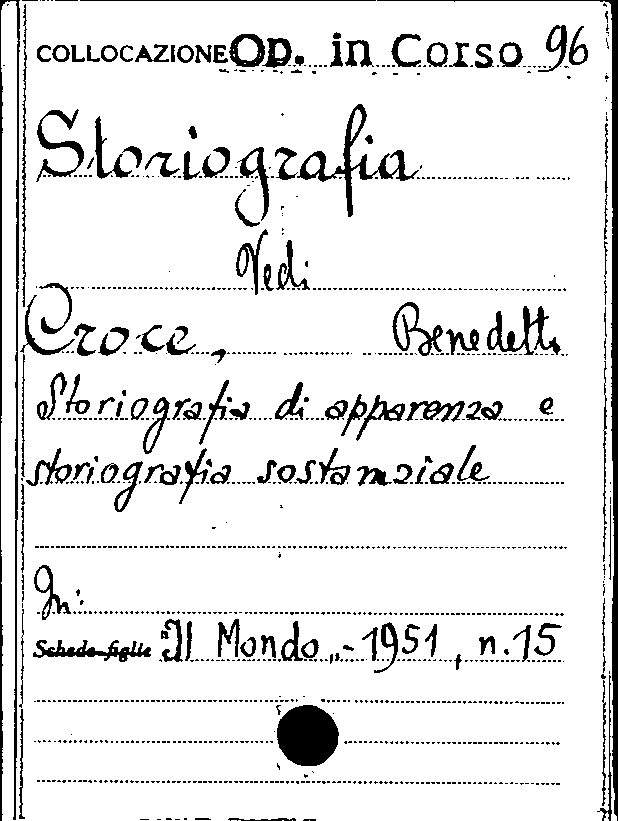 COLLOCAZIONE OP. in Corso 96
Storiografia
Vedi
Croce, Benedetto
Storiografia di apparenza e
storiografia sostanziale
In:
Schede figlie "Il Mondo„ - 1951, n. 15